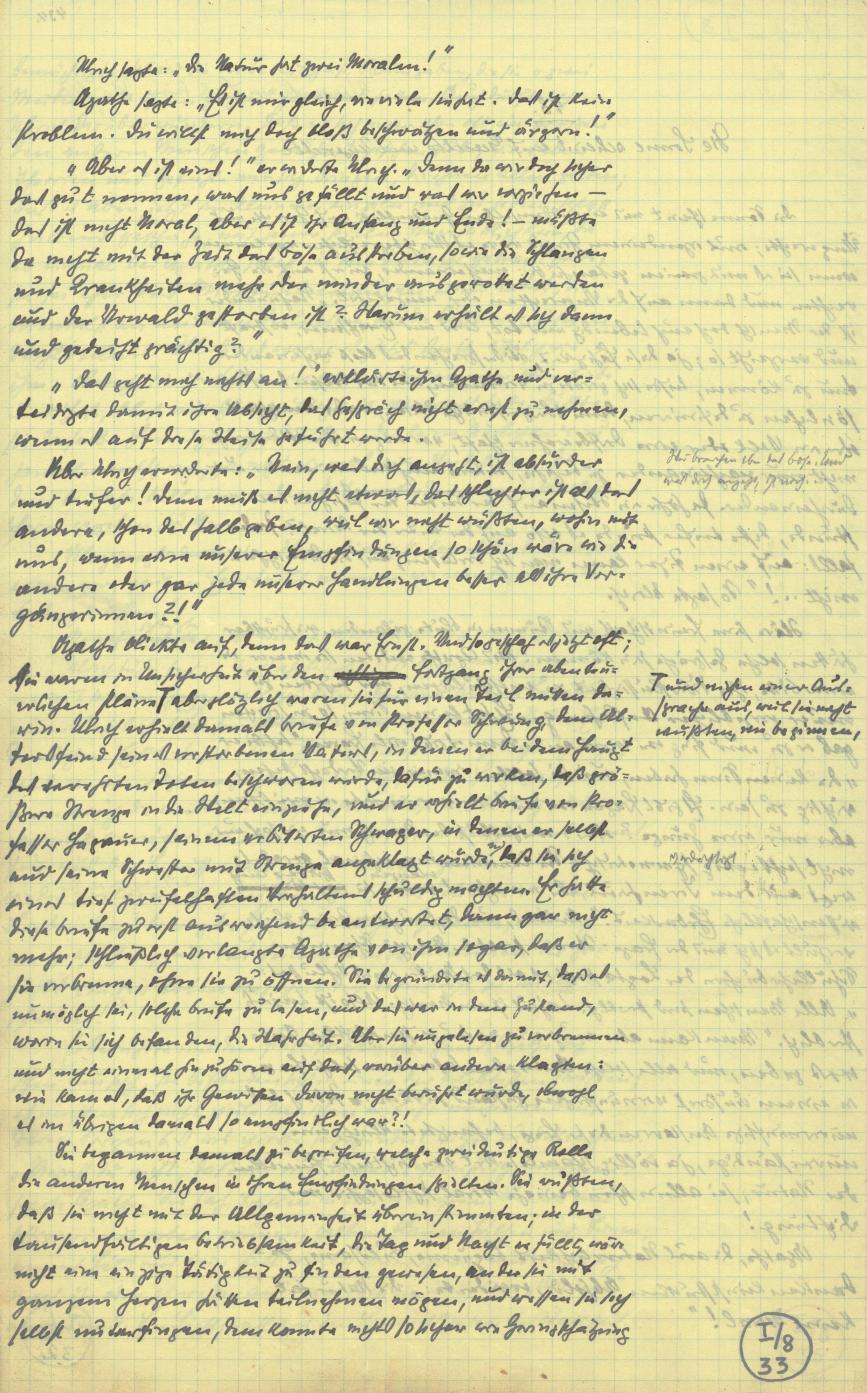 Ulrich sagte: „Die Natur hat zwei Moralen!"
Agathe sagte: „Es ist mir gleich, wie viele sie hat. Das ist kein
Problem. Du willst mich doch bloß beschwätzen und ärgern!"
„Aber es ist eins!" erwiderte Ulrich. „Denn da wir doch sicher
das gut nennen, was uns gefällt und was wir vorziehen —
das ist nicht Moral, aber es ist ihr Anfang und Ende! — müßte
da nicht mit der Zeit das Böse aussterben, so wie die Schlangen
und Krankheiten mehr oder minder ausgerottet werden
und der Urwald gestorben ist? Warum erhält es sich dann
und gedeiht prächtig?"
„Das geht mich nichts an!" erklärte ihm Agathe und ver-
teidigte damit ihre Absicht, das Gespräch nicht ernst zu nehmen,
wenn es auf diese Weise geführt werde.
Aber Ulrich erwiderte: „Nein, was dich angeht, ist absurder
und tiefer! Denn muß es nicht etwas, das schlechter ist als das
andere, schon deshalb geben, weil wir nicht wüßten, wohin mit
uns, wenn eine unserer Empfindungen so schön wäre wie die
andere oder gar jede unserer Handlungen besser als ihre Vor-
gängerinnen?!"
Agathe blickte auf, denn das war Ernst. Und so geschah es jetzt oft;
sie waren in Unsicherheit über den Fortgang ihrer abenteu-
erlichen Pläne
T und wichen einer Aus-
sprache aus, weil sie nicht
wußten, wie beginnen,
T aber plötzlich waren sie für einen Teil mitten da-
rin. Ulrich erhielt damals briefe von Professor Schwung, dem Al-
tersfeind seines verstorbenen Vaters, in denen er bei dem Haupt
des verehrten Toten beschworen wurde, dafür zu wirken, daß grö-
ßere Strenge in die Welt einzöge, und er erhielt briefe von Pro-
fessor Hagauer, seinem erbitterten Schwager, in denen er selbst
und seine Schwester mit Strenge angeklagt wurde, daß sie sich
verdächtigt
eines tief zweifelhaften Verhaltens schuldig machten. Er hatte
diese briefe zuerst ausweichend beantwortet, dann gar nicht
mehr; schließlich verlangte Agathe von ihm sogar, daß er
sie verbrenne, ohne sie zu öffnen. Sie begründete es damit, daß es
unmöglich sei, solche briefe zu lesen, und das war in dem Zustand,
worin sie sich befanden, die Wahrheit. Aber sie ungelesen zu verbrennen
und nicht einmal hinzuhören auf das, worüber andere klagten:
wie kam es, daß ihr Gewissen davon nicht berührt wurde, obwohl
es im übrigen damals so empfindlich war?!
Sie begannen damals zu begreifen, welche zweideutige Rolle
die anderen Menschen in ihren Empfindungen spielten. Sie wußten,
daß sie nicht mit der Allgemeinheit übereinstimmten; in der
tausendfältigen betriebsamkeit, die Tag und Nacht erfüllt, wäre
nicht eine einzige Tätigkeit zu finden gewesen, an der sie mit
ganzem Herzen hätten teilnehmen mögen, und wessen sie sich
selbst unterfingen, dem konnte nichts so sicher wie Geringschätzung
I/8
33